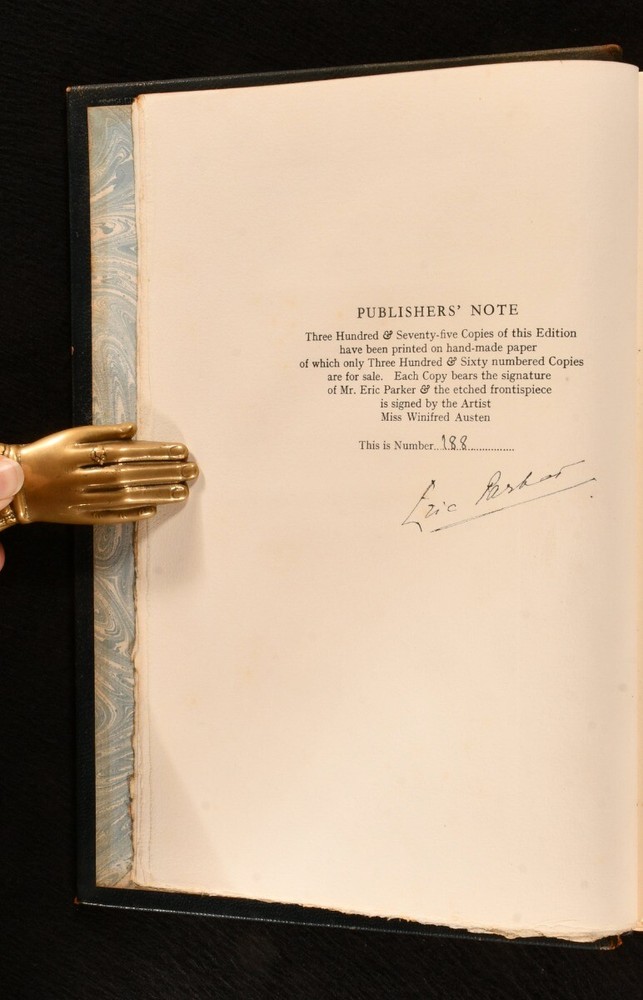 PUBLISHERS' NOTE
Three Hundred & Seventy-five Copies of this Edition
have been printed on hand-made paper
of which only Three Hundred & Sixty numbered Copies
are for sale. Each Copy bears the signature
of Mr. Eric Parker & the etched frontispiece
is signed by the Artist
Miss Winifred Austen
This is Number 188
Eric Parker